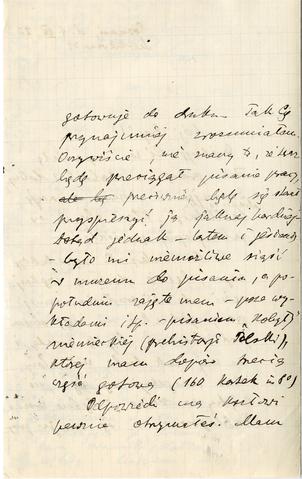 gotowuję do druku. Tak Cię
przynajmniej zrozumiałem.
Oczywiście, nie znaczy to, że
będę przeciągał pisanie pracy,
ale by przeciwnie, będę się starał
przyspieszyć ją jaknajbardziej.
Dotąd jednak – latem i jesienią
– było mi niemożliwe siąść
w muzeum do pisania, a po-
południu zajęte mam – poza wy-
kładami itp. – pisaniem
niemieckiej (prehistorji Polski),
której mam dopiero trzecią
część gotową (160 kartek in 8°)
Odpowiedź na kartkę
pewnie otrzymałeś. Mam